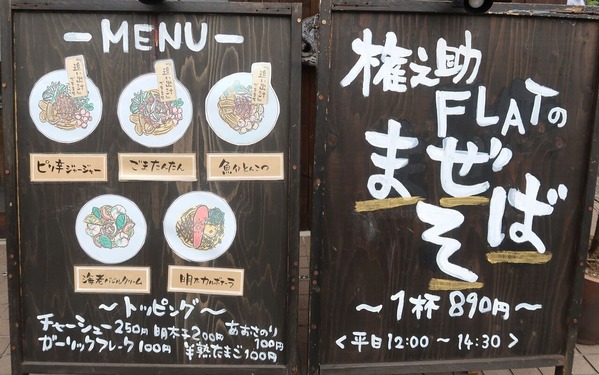 MENU
追い飯付
追い飯付
追い飯付
ピリ辛ジャージャー
ごまたんたん
魚介とんこつ
海老バジルクリーム
明太カルボナーラ
〜トッピング〜
チャーシュー250円 明太子200円 あおさのり100円
ガーリックフレーク100円 半熟たまご100円
権之助
FLATの
まぜそば
〜1杯 890円〜
<平日12:00〜14:30>